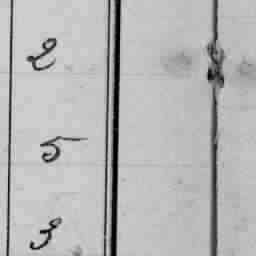 2
5
3